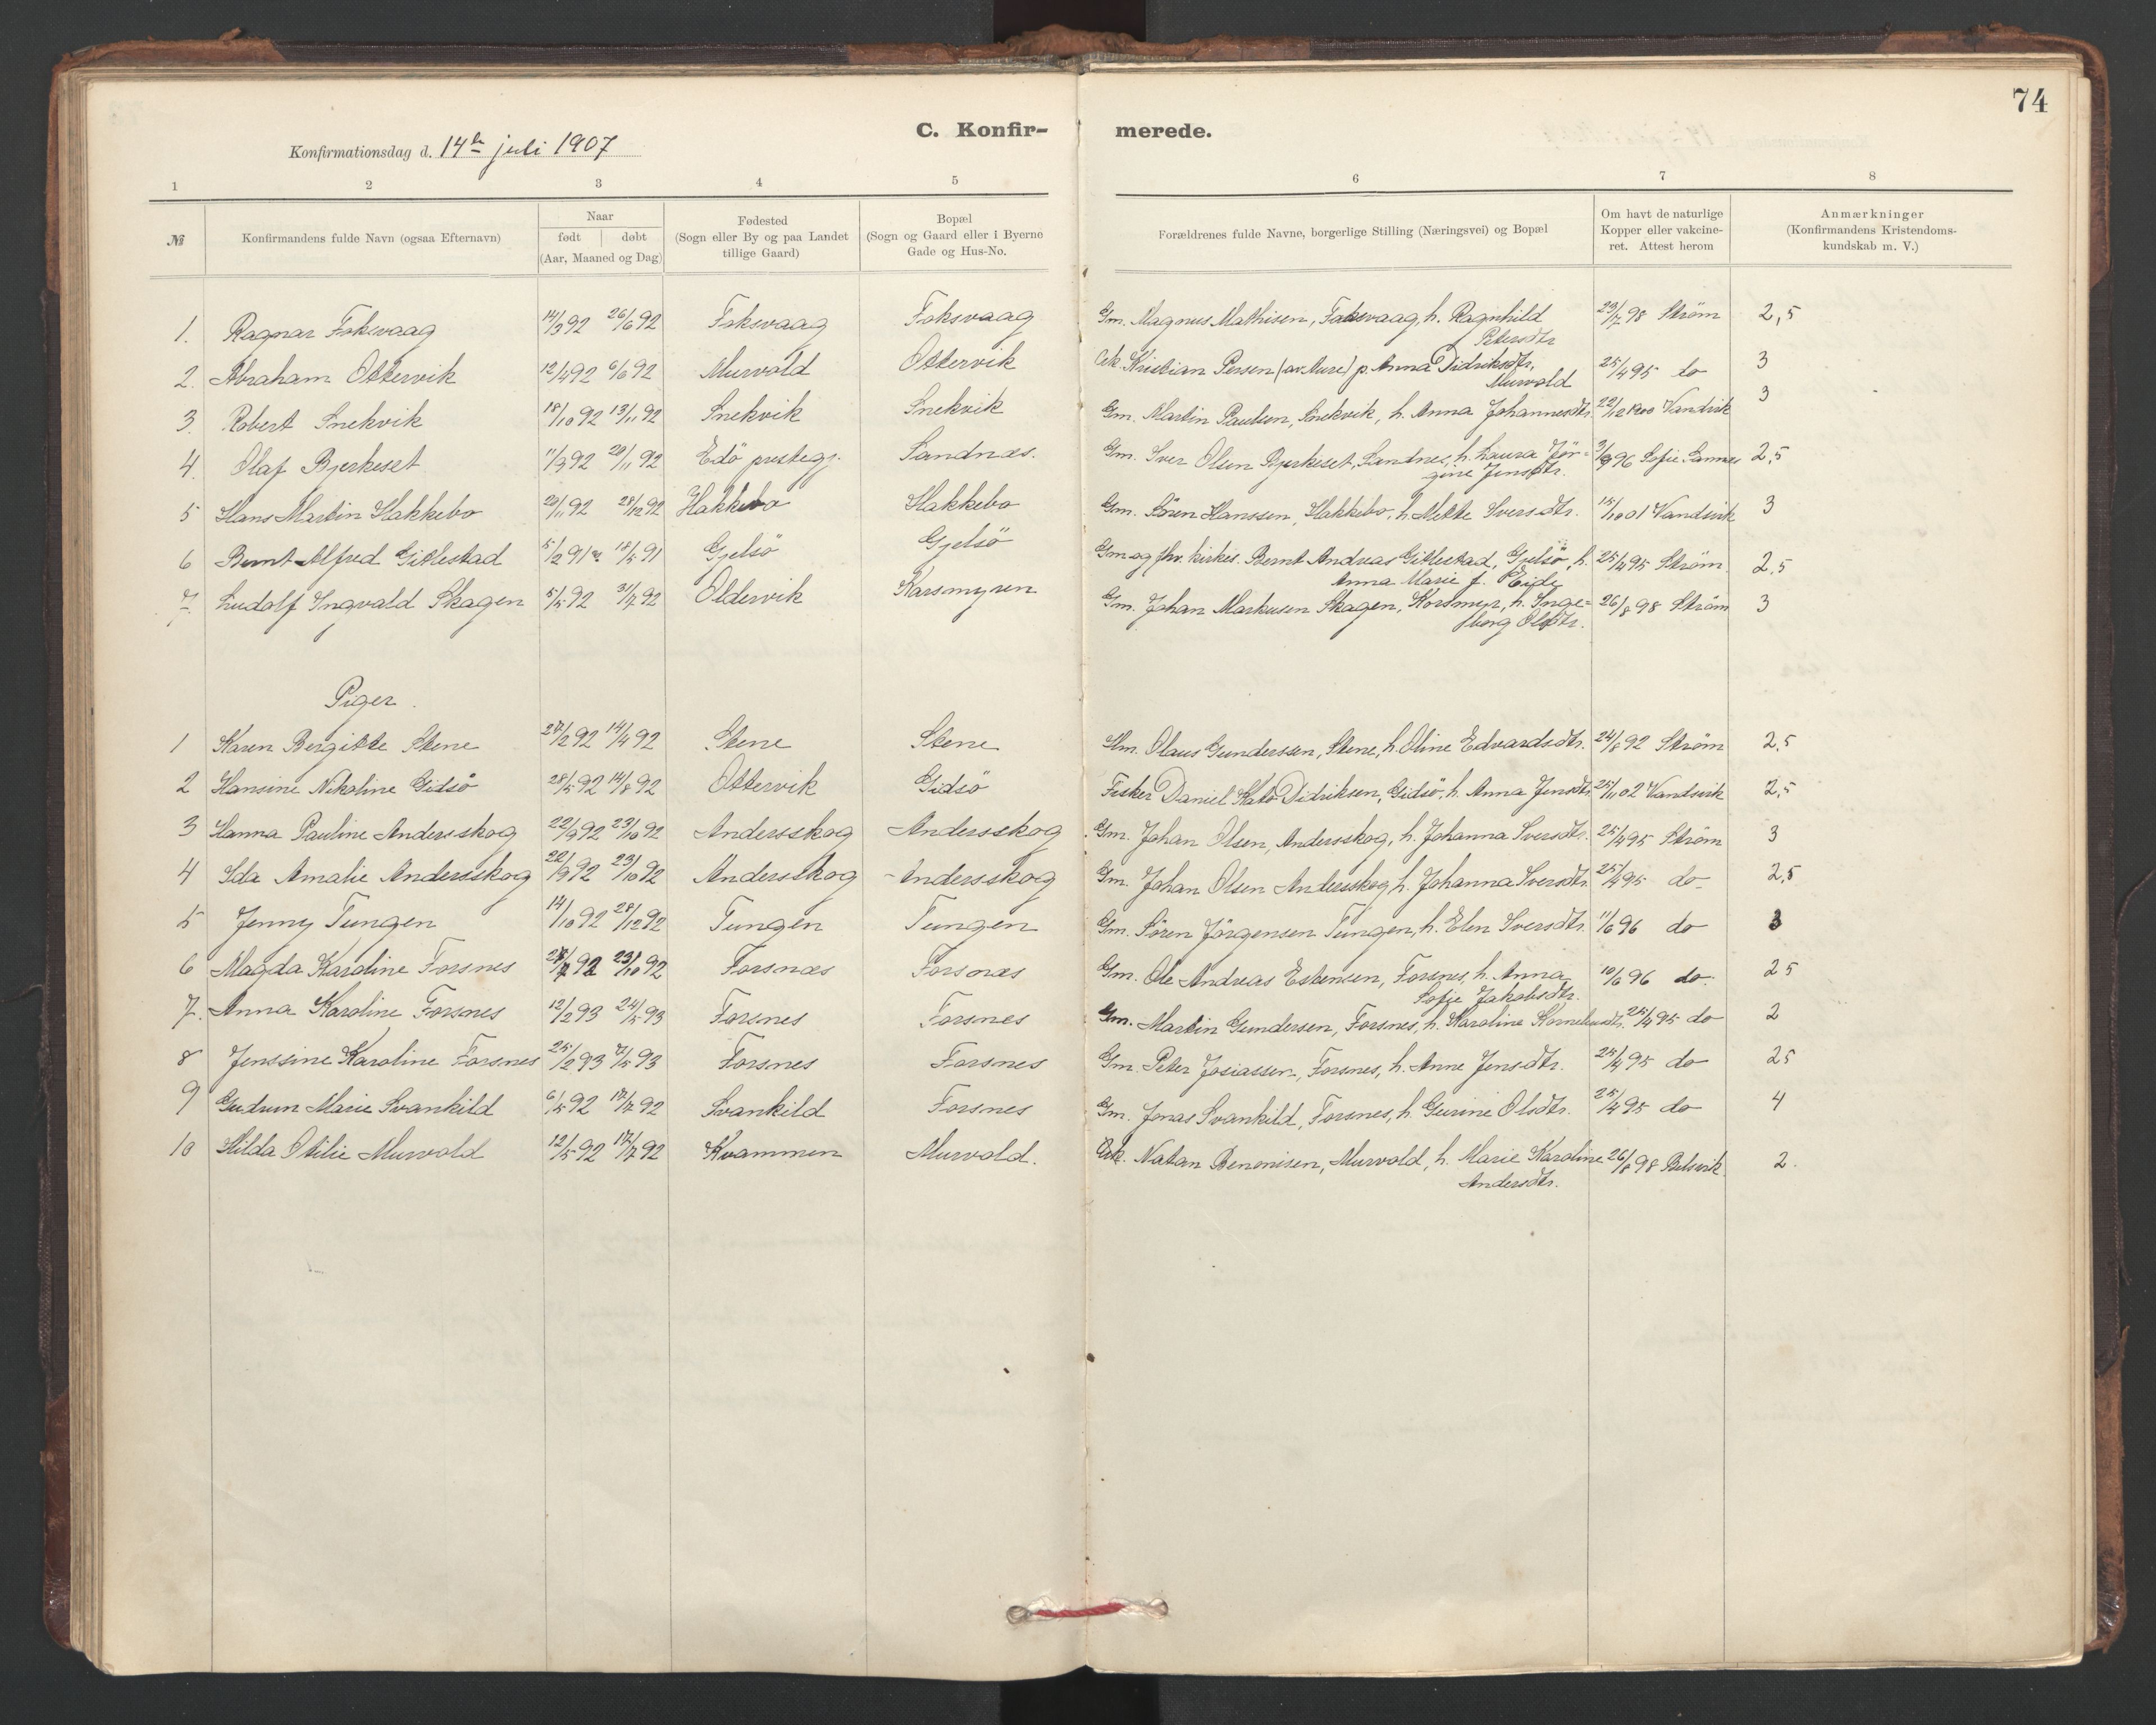 74
C. Konfirmerede.
Konfirmationsdag d. 14de juli 1907
1 2 3 4 5 6 7 8
№ Konfirmandens fulde Navn (ogsaa Efternavn) Naar født døbt (Aar, Maaned og Dag) Fødested (Sogn eller By og paa Landet tillige Gaard) Bopæl (Sogn og Gaard eller i Byerne Gade og Hus-No. Forældrenes fulde Navne, borgerlige Stilling (Næringsvei) og Bopæl Om havt de naturlige Kopper eller vakcineret. Attest herom Anmærkninger (Konfirmandens Kristendomskundskab m. V.)
1. Ragnar Foksvaag 14/3 92 26/6 92 Foksvaag Foksvaag Gm. Magnus Mathisen, Foksvaag, h. Ragnhild Petersdtr 23/7 98 Strøm 2,5
2. Abraham Ottervik 12/4 92 6/6 92 Murvold Ottervik Kristian Persen (av Aure) p. Anna Didriksdtr, Murvold 25/4 95 do 3
3. Robert Snekvik 18/10 92 13/11 92 Snekvik Snekvik Gm. Martin Paulsen, Snekvik, h. Anna Johannesdtr. 22/12 1900 Vandvik 3
4. Olaf Bjerkeset 11/9 92 20/11 92 Edö prestegj. Sandnæs. Gm. Iver Olsen Bjerkeset, Sandnes, h. Laura Jörgine Jensdtr. 3/9 96 Sofie 2,5
5 Hans Martin Hakkebo 20/11 92 28/12 92 Hakkebo Hakkebo Gm. Sören Hanssen, Hakkebo, h. Mette Iversdtr. 15/10 01 Vandvik 3
6 Bernt Alfred Gitlestad 5/2 91 18/5 91 Gjelsö Gjelsö Gm og fhv. kirkes. Bernt Andreas Gitlestad, Gjelsö, h. Anna Marie f. Eide 25/4 95 Strøm. 2,5
7. Ludolf Ingvald Skagen 5/5 92 31/7 92 Oldervik Karsmyren Gm. Johan Markusen Skagen, Korsmyr, h. Ingeborg Olsdtr. 26/8 98 Strøm 3
Piger.
1 Karen Bergitte Stene 27/2 92 14/4 92 Stene Stene Olaus Gunderssen, Stene, h. Oline Edvardsdtr. 24/8 92 Strøm 2,5
2 Hansine Nikoline Gidsö 28/5 92 14/8 92 Ottervik Gidsö Fisker Daniel Kato Didriksen, Gidsö, h. Anna Jensdtr. 25/11 02 Vandvik 2,5
3 Hanna Pauline Andersskog 22/9 92 23/10 92 Andersskog Andersskog Gm. Johan Olsen, Andersskog, h. Johanna Iversdtr. 25/4 95 Strøm 3
4 Ida Amalie Andersskog 22/9 92 23/10 92 Andersskog Andersskog Gm. Johan Olsen Andersskog, h. Johanna Iversdtr. 25/4 95 do 2,5
5 Jenny Tungen 14/10 92 28/12 92 Tungen Tungen Gm. Sören Jörgensen Tungen, h. Elen Iversdtr. 11/6 96 do 3
6 Magda Karoline Forsnes 92 23/10 92 Forsnæs Forsnæs Gm. Ole Andreas Estensen, Forsnes, h. Anna Sofie Jakobsdtr. 10/6 96 do. 2 5
7. Anna Karoline Forsnes 12/2 93 24/5 93 Forsnes Forsnes Gm. Martin Gundersen, Forsnes, h. Karoline Korneliusdtr. 25/4 95 do 2
8 Jenssine Karoline Forsnes 25/2 93 7/5 93 Forsnes Forsnes Gm. Peter Josiassen, Forsnes, h. Anne Jensdtr. 25/4 95 do 2 5
9 Gudrun Marie Svankild 6/5 92 17/7 92 Svankild Forsnes Gm. Jonas Svankild, Forsnes, h. Gurine Olsdtr. 25/4 95 do 4
10 Hilda Otilie Murvold 12/5 92 17/7 92 Kvammen Murvold. Natan Benonisen, Murvold, h. Marie Karoline Andersdtr. 26/8 98 Belsvik 2.